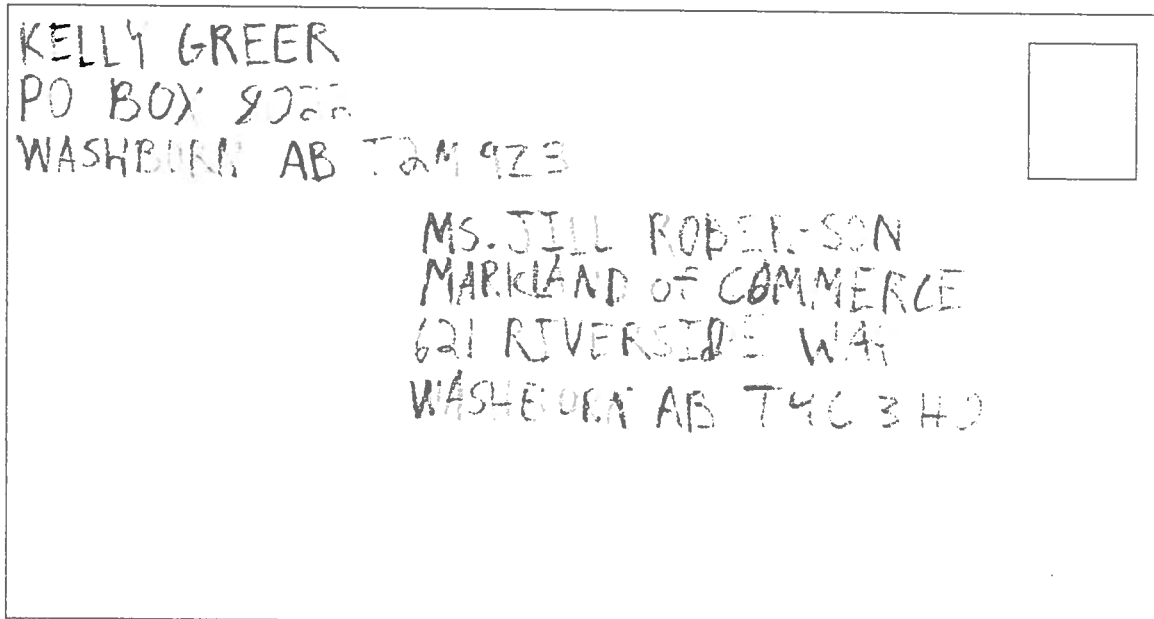 KELLY GREER
PO BOX
WASHBURN AB T2M 9Z3
MS. JILL ROBERTSON
MARKLAND OF COMMERCE
621 RIVERSIDE WAY
WASHBURN AB T4C 3H9